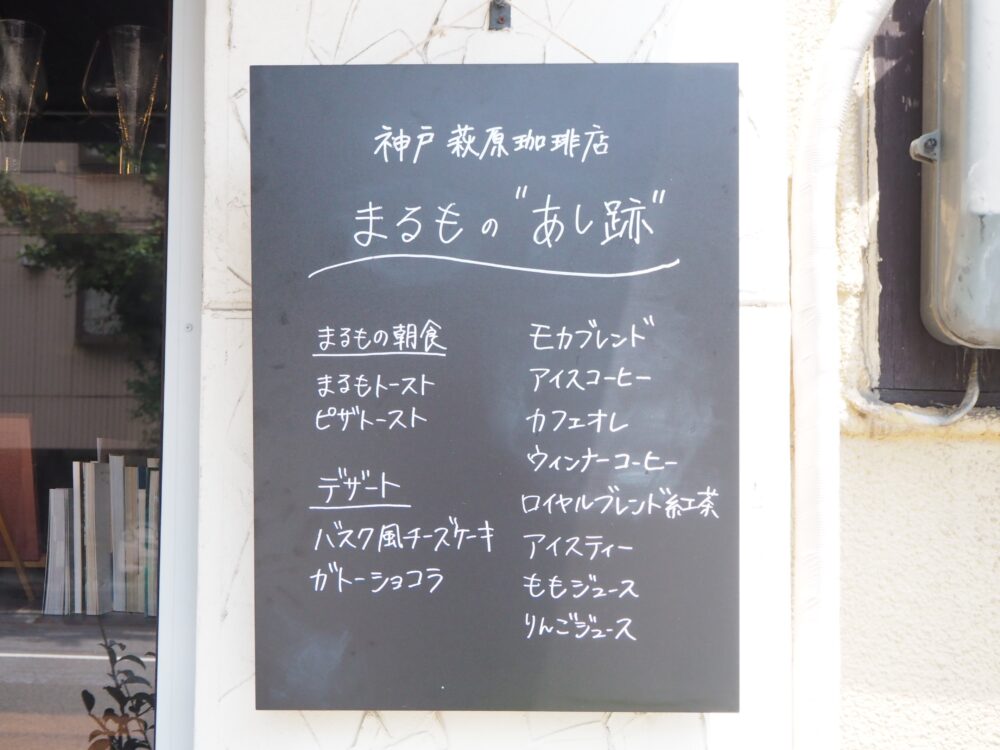 神戸 萩原珈琲店
まるもの"あし跡"
まるもの朝食
まるもトースト
ピザトースト
デザート
バスク風チーズケーキ
ガトーショコラ
モカブレンド
アイスコーヒー
カフェオレ
ウィンナーコーヒー
ロイヤルブレンド紅茶
アイスティー
ももジュース
りんごジュース